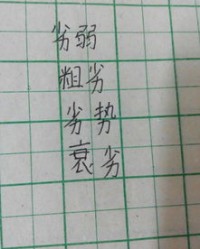 劣弱
粗劣
劣势
衰劣